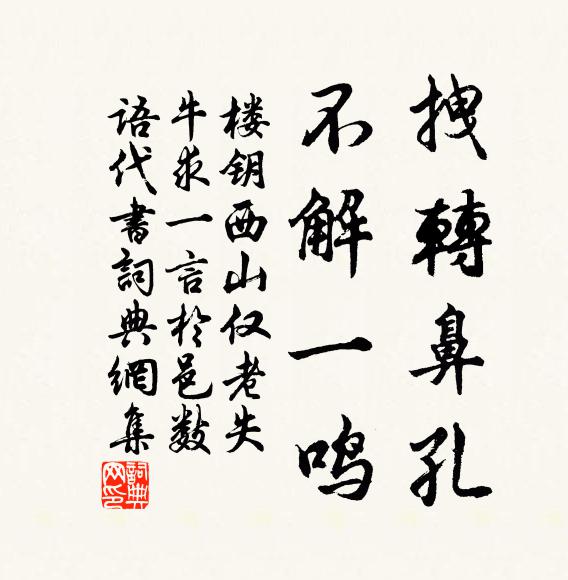 拽轉鼻孔
不解一鸣
楼钥西山仅老失
牛求一言於邑数
语代書詞典網集
詞典
网印